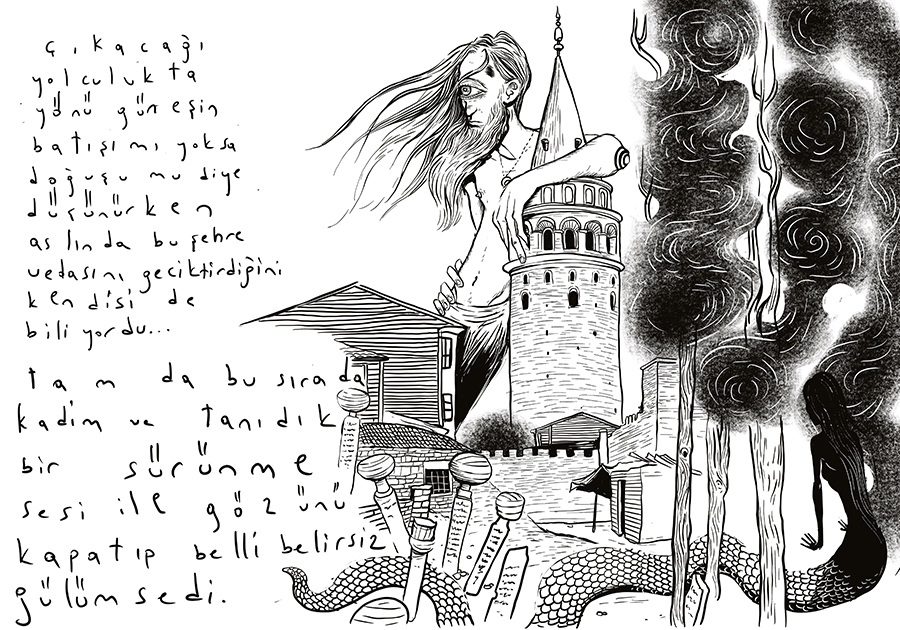 çıkacağı
yolculukta
yönü güneşin
batışı mı yoksa
doğuşu mu diye
düşünürken
aslında bu şehre
vedasını geciktirdiğini
kendisi de
biliyordu...
tam da bu sırada
kadim ve tanıdık
bir sürünme
sesi ile gözünü
kapatıp belli belirsiz
gülümsedi.